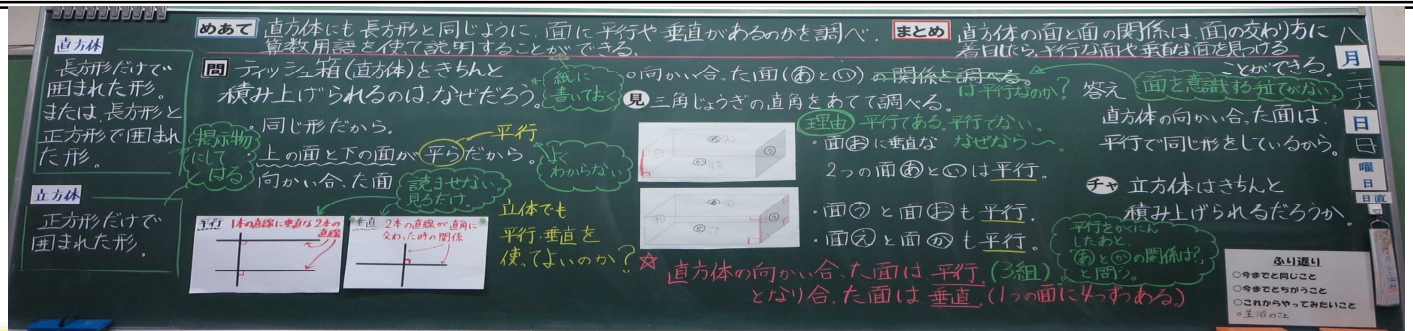 直方体
長方形だけで
囲まれた形。
または、長方形と
正方形で囲まれ
た形。
立方体
正方形だけで
囲まれた形。
めあて 直方体にも長方形と同じように、面に平行や垂直があるのかを調べ、
算数用語を使って説明することができる。
問 ティッシュ箱(直方体)をきちんと
積み上げられるのは、なぜだろう。
紙に
書いておく
・同じ形だから。
・上の面と下の面が平らだから。
向かい合った面
平行
よく
わからない
掲示物
にして
はる
読ませない。
見るだけ。
平行 1本の直線に垂直な2本の
直線
垂直 2本の直線が直角に
交わった時の関係
立体でも
平行・垂直を
使ってよいのか?
○向かい合った面(あといい)の関係を調べる。
は平行なのか?
見 三角じょうぎの直角をあてて調べる。
理由 平行である。平行でない。
なぜなら〜。
・面おに垂直な
2つの面あといは平行。
・面うと面おも平行。
・面えと面かも平行。
☆ 直方体の向かい合った面は平行。(3組)
となり合った面は垂直。(1つの面に4つずつある)
まとめ 直方体の面と面の関係は、面の交わり方に
着目したら、平行な面や垂直な面を見つける
ことができる。
面を意識する強てがない
答え
直方体の向かい合った面は、
平行で同じ形をしているから。
チャ 立方体はきちんと
積み上げられるだろうか
平行をかくにん
したあと、
あとかの関係は?
と問う。
ふり返り
○今までと同じこと
○今までとちがうこと
○これからやってみたいこと
○生活のこと
八
月
二十六
日
曜
日
日直